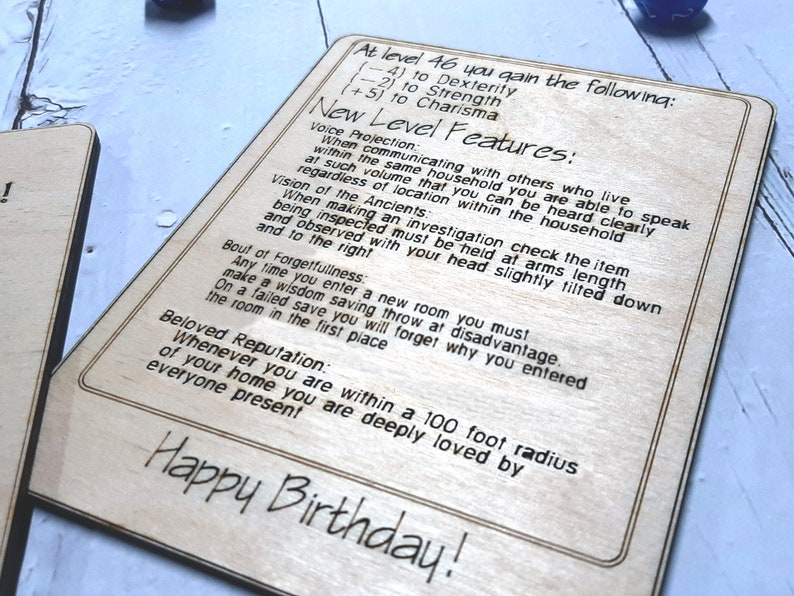 At level 46 you gain the following:
(-4) to Dexterity
(-2) to Strength
(+5) to Charisma
New Level Features:
Voice Projection:
When communicating with others who live
within the same household you are able to speak
at such volume that you can be heard clearly
regardless of location within the household
Vision of the Ancients:
When making an investigation check the item
being inspected must be held at arms length
and observed with your head slightly tilted down
and to the right
Bout of Forgetfullness:
Any time you enter a new room you must
make a wisdom saving throw at disadvantage
On a failed save you will forget why you entered
the room in the first place
Beloved Reputation:
Whenever you are within a 100 foot radius
of your home you are deeply loved by
everyone present
Happy Birthday!
!